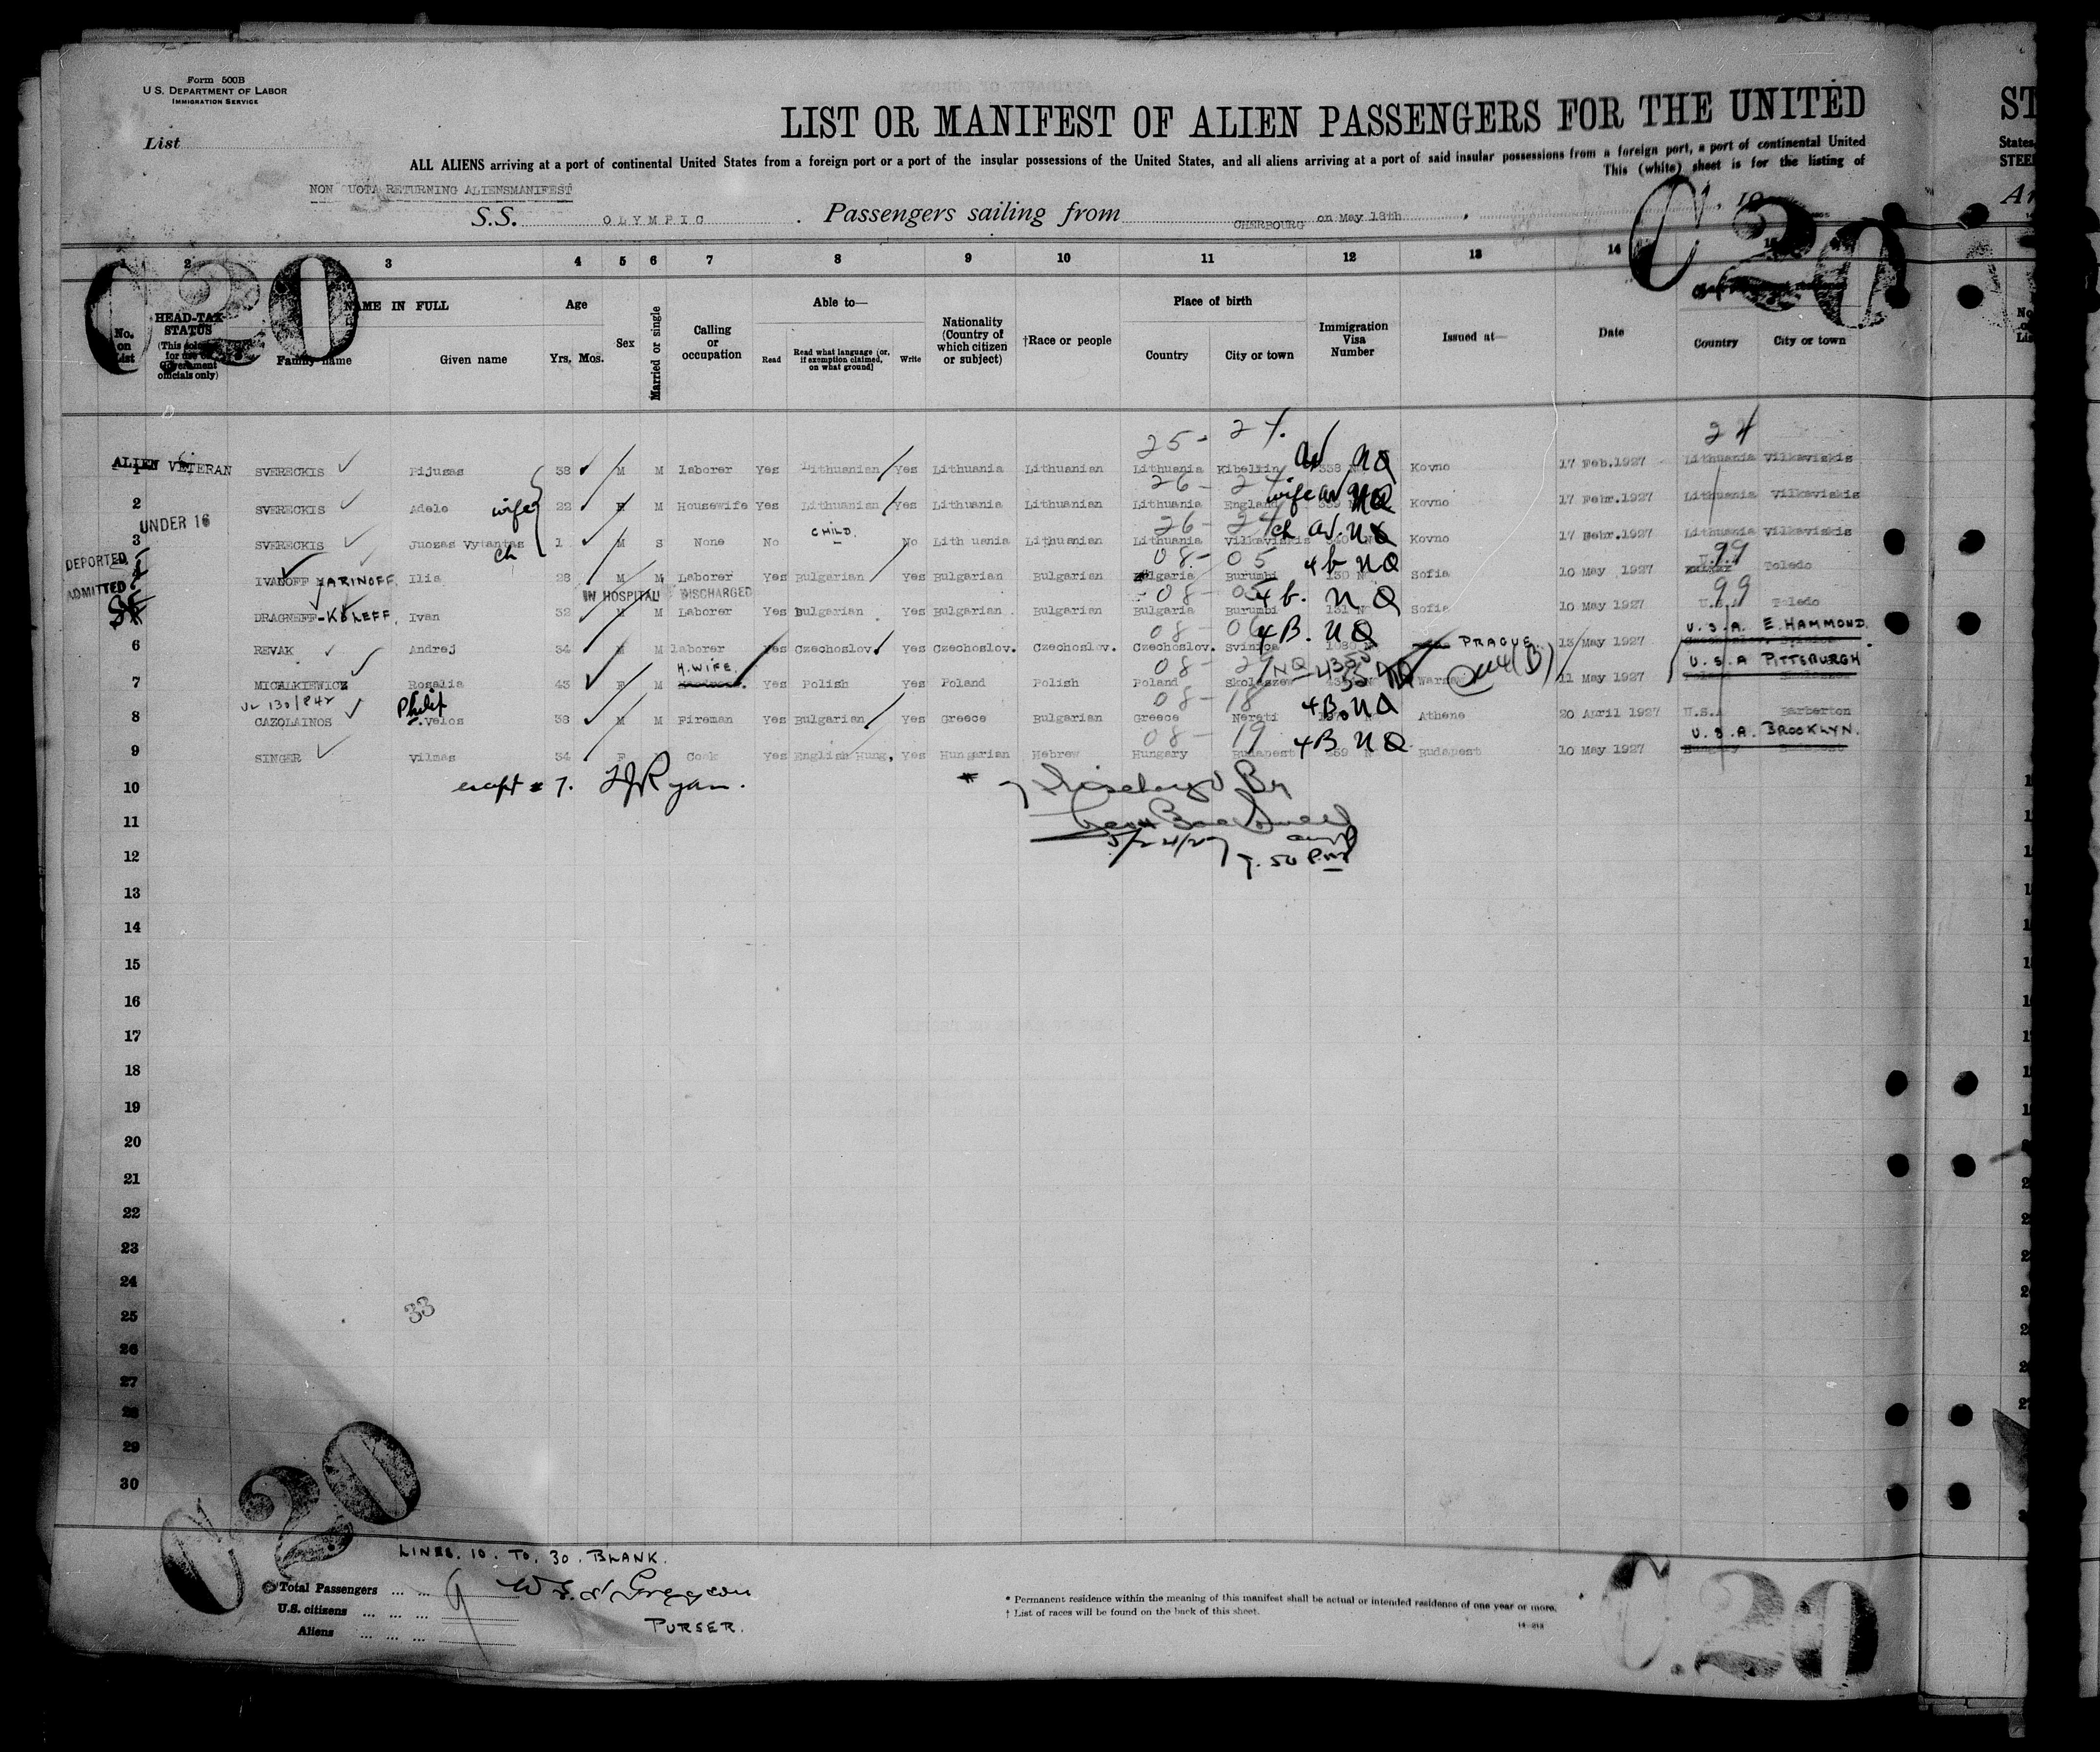 Form 500B
U. S. DEPARTMENT OF LABOR
IMMIGRATION SERVICE
List
LIST OR MANIFEST OF ALIEN PASSENGERS FOR THE UNITED
ALL ALIENS arriving at a port of continental United States from a foreign port or a port of the insular possessions of the United States, and all aliens arriving at a port of said insular possessions from a foreign port, a port of continental United
This (white) sheet is for the listing of
NON QUOTA RETURNING ALIENSMANIFEST
S.S. OLYMPIC . Passengers sailing from CHERBOURG on May 18th
C 20
C 20
1 2 3 4 5 6 7 8 9 10 11 12 13 14 15
No. on List
HEAD-TAX STATUS (This column for use of Government officials only)
NAME IN FULL
Family name Given name
Age
Yrs. Mos.
Sex
Married or single
Calling or occupation
Able to—
Read Read what language (or, if exemption claimed, on what ground) Write
Nationality (Country of which citizen or subject)
†Race or people
Place of birth
Country City or town
Immigration Visa Number
Issued at—
Date
Country City or town
25- 24
ALIEN VETERAN
1 SVERECKIS Pijusas 38 M M laborer Yes Lithuanian Yes Lithuania Lithuanian Lithuania 338 NQ Kovno 17 Feb.1927 Lithuania Vilkaviskis
26- 24
2 SVERECKIS Adele wife 22 M Housewife Yes Lithuanian Yes Lithuania Lithuanian Lithuania England wife 339 NQ Kovno 17 Febr.1927 Lithuania Vilkaviskis
UNDER 16
26- 24
3 SVERECKIS Juozas Vytantas ch 1 M S None No CHILD. No Lith uania Lithuanian Lithuania Vilkaviskis ch NQ Kovno 17 Febr.1927 Lithuania Vilkaviskis
DEPORTED
08- 05 99
4 IVANOFF YARINOFF. Ilia 28 M M Laborer Yes Bulgarian Yes Bulgarian Bulgarian Bulgaria Burumbi 4b NQ 130 Sofia 10 May 1927 Toledo
ADMITTED
IN HOSPITAL DISCHARGED
08- 05 99
DRAGNEFF-KOLEFF. Ivan 32 M M Laborer Yes Bulgarian Yes Bulgarian Bulgarian Bulgaria Burumbi 4b. NQ 131 Sofia 10 May 1927 U.S.A Toledo
08- 06
6 REVAK Andrej 34 M M laborer Yes Czechoslov. Yes Czechoslov. Czechoslov. Czechoslov. Svinica 4B. NQ PRAGUE 13 May 1927 U.S.A. E.HAMMOND.
7 MICALKIEWICZ Rosalia 43 F M H.WIFE. Yes Polish Yes Poland Polish Poland NQ Warsaw 11 May 1927 U.S.A PITTSBURGH.
08- 18
8 CAZOLAINOS Philip Velos 38 M M Fireman Yes Bulgarian Yes Greece Bulgarian Greece Nereti 4B. NQ Athens 20 April 1927 U.S.A Barberton
08- 19
9 SINGER Vilmas 34 F Cook Yes English Hung. Yes Hungarian Hebrew Hungary Budapest 4B NQ Budapest 10 May 1927 U.S.A. BROOKLYN.
except # 7. Ryan.
5/24/27
7.50 P.M
10
11
12
13
14
15
16
17
18
19
20
21
22
23
24
25
33
26
27
28
29
30
C 20
LINES. 10. TO. 30. BLANK.
Total Passengers ... ... 9
U.S. citizens ... ... ...
Aliens ... ... ...
PURSER.
* Permanent residence within the meaning of this manifest shall be actual or intended residence of one year or more.
† List of races will be found on the back of this sheet.
C.20